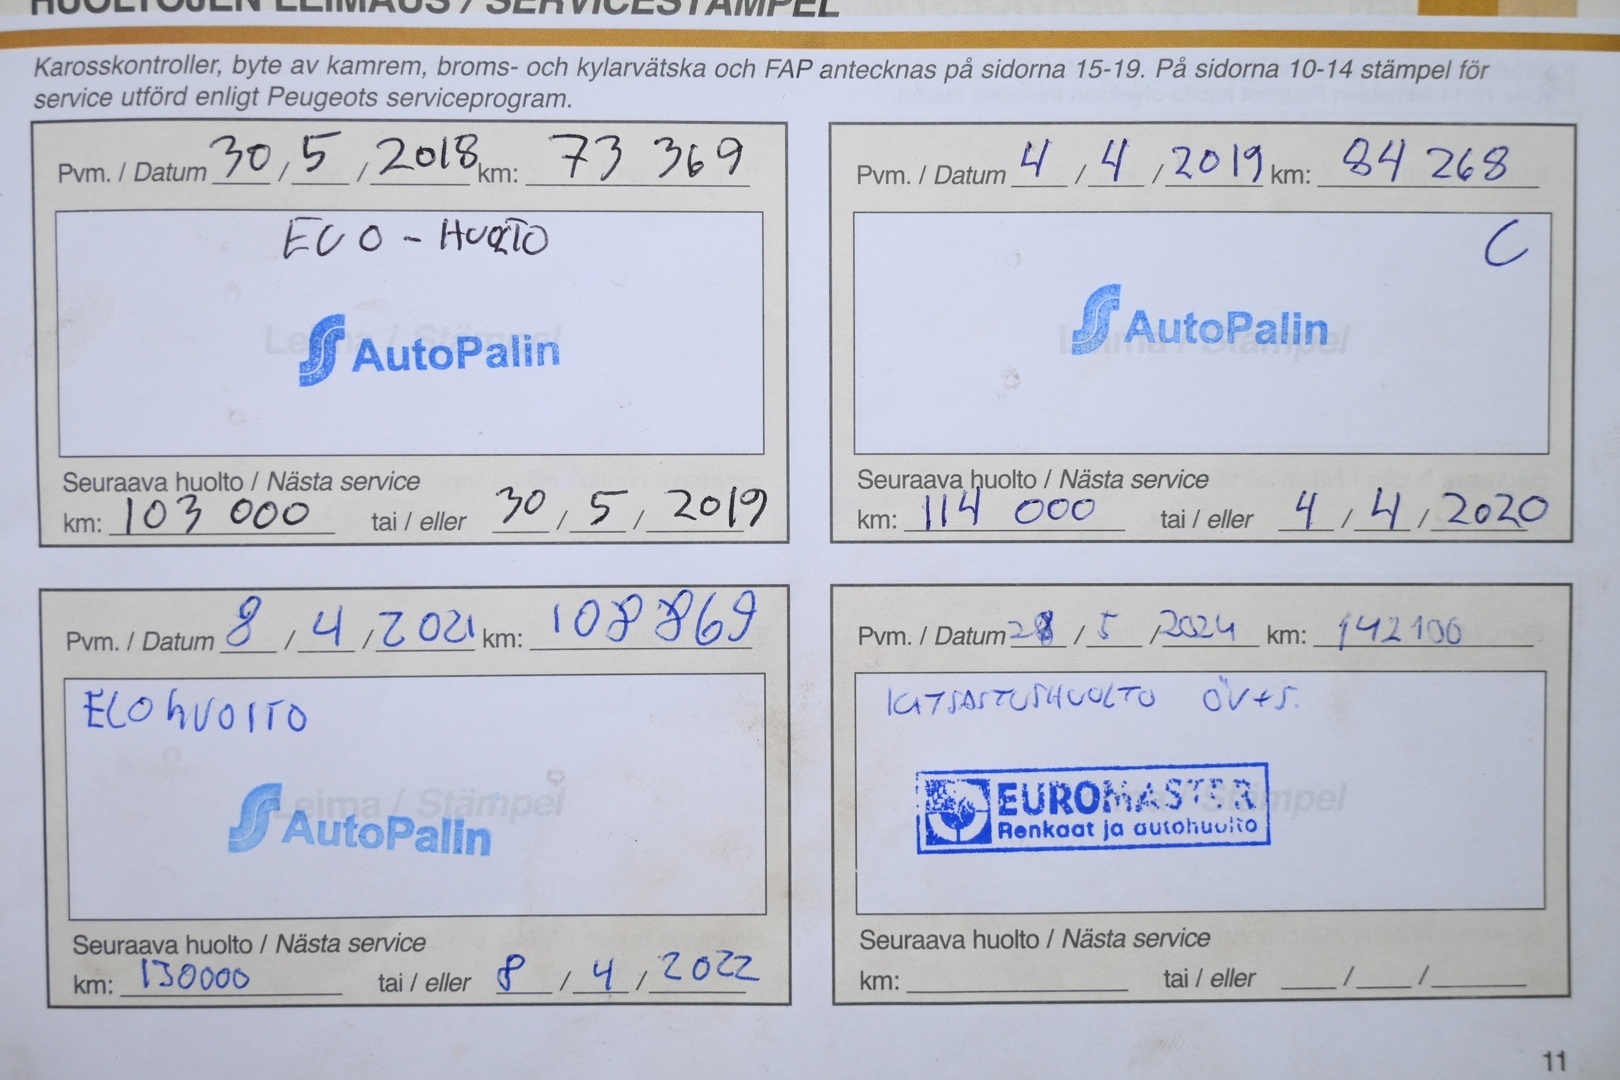 HUOLTOJEN LEIMAUS / SERVICESTÄMPEL
Karosskontroller, byte av kamrem, broms- och kylarvätska och FAP antecknas på sidorna 15-19. På sidorna 10-14 stämpel för
service utförd enligt Peugeots serviceprogram.
Pvm. / Datum 30 / 5 / 2018 km: 73 369
ECO - HUOLTO
Leima / Stämpel
AutoPalin
Seuraava huolto / Nästa service
km: 103 000 tai / eller 30 / 5 / 2019
Pvm. / Datum 4 / 4 / 2019 km: 84 268
C
Leima / Stämpel
AutoPalin
Seuraava huolto / Nästa service
km: 114 000 tai / eller 4 / 4 / 2020
Pvm. / Datum 8 / 4 / 2021 km: 108 869
ECO hUOlTO
Leima / Stämpel
AutoPalin
Seuraava huolto / Nästa service
km: 130000 tai / eller 8 / 4 / 2022
Pvm. / Datum 28 / 5 / 2024 km: 142100
KATSASTUSHUOLTO ÖV+S.
Leima / Stämpel
EUROMASTER
Renkaat ja autohuolto
Seuraava huolto / Nästa service
km: tai / eller / /
11